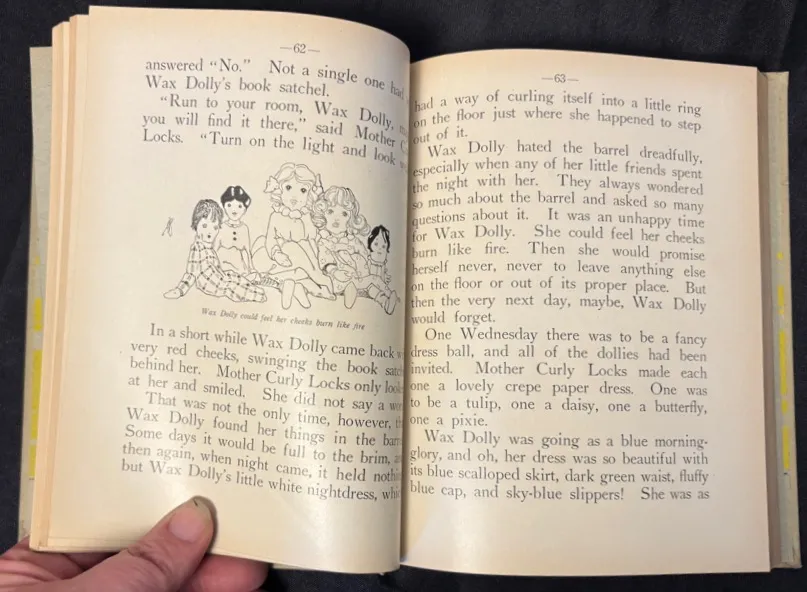 —62—
answered "No." Not a single one had
Wax Dolly's book satchel.
"Run to your room, Wax Dolly,
you will find it there," said Mother
Locks. "Turn on the light and look
Wax Dolly could feel her cheeks burn like fire
In a short while Wax Dolly came back
very red cheeks, swinging the book
behind her. Mother Curly Locks only
at her and smiled. She did not say a
That was not the only time, however,
Wax Dolly found her things in the
Some days it would be full to the brim,
then again, when night came, it held
but Wax Dolly's little white nightdress,
—63—
had a way of curling itself into a little ring
on the floor just where she happened to step
out of it.
Wax Dolly hated the barrel dreadfully,
especially when any of her little friends spent
the night with her. They always wondered
so much about the barrel and asked so many
questions about it. It was an unhappy time
for Wax Dolly. She could feel her cheeks
burn like fire. Then she would promise
herself never, never to leave anything else
on the floor or out of its proper place. But
then the very next day, maybe, Wax Dolly
would forget.
One Wednesday there was to be a fancy
dress ball, and all of the dollies had been
invited. Mother Curly Locks made each
one a lovely crepe paper dress. One was
to be a tulip, one a daisy, one a butterfly,
one a pixie.
Wax Dolly was going as a blue morning-
glory, and oh, her dress was so beautiful with
its blue scalloped skirt, dark green waist, fluffy
blue cap, and sky-blue slippers! She was as